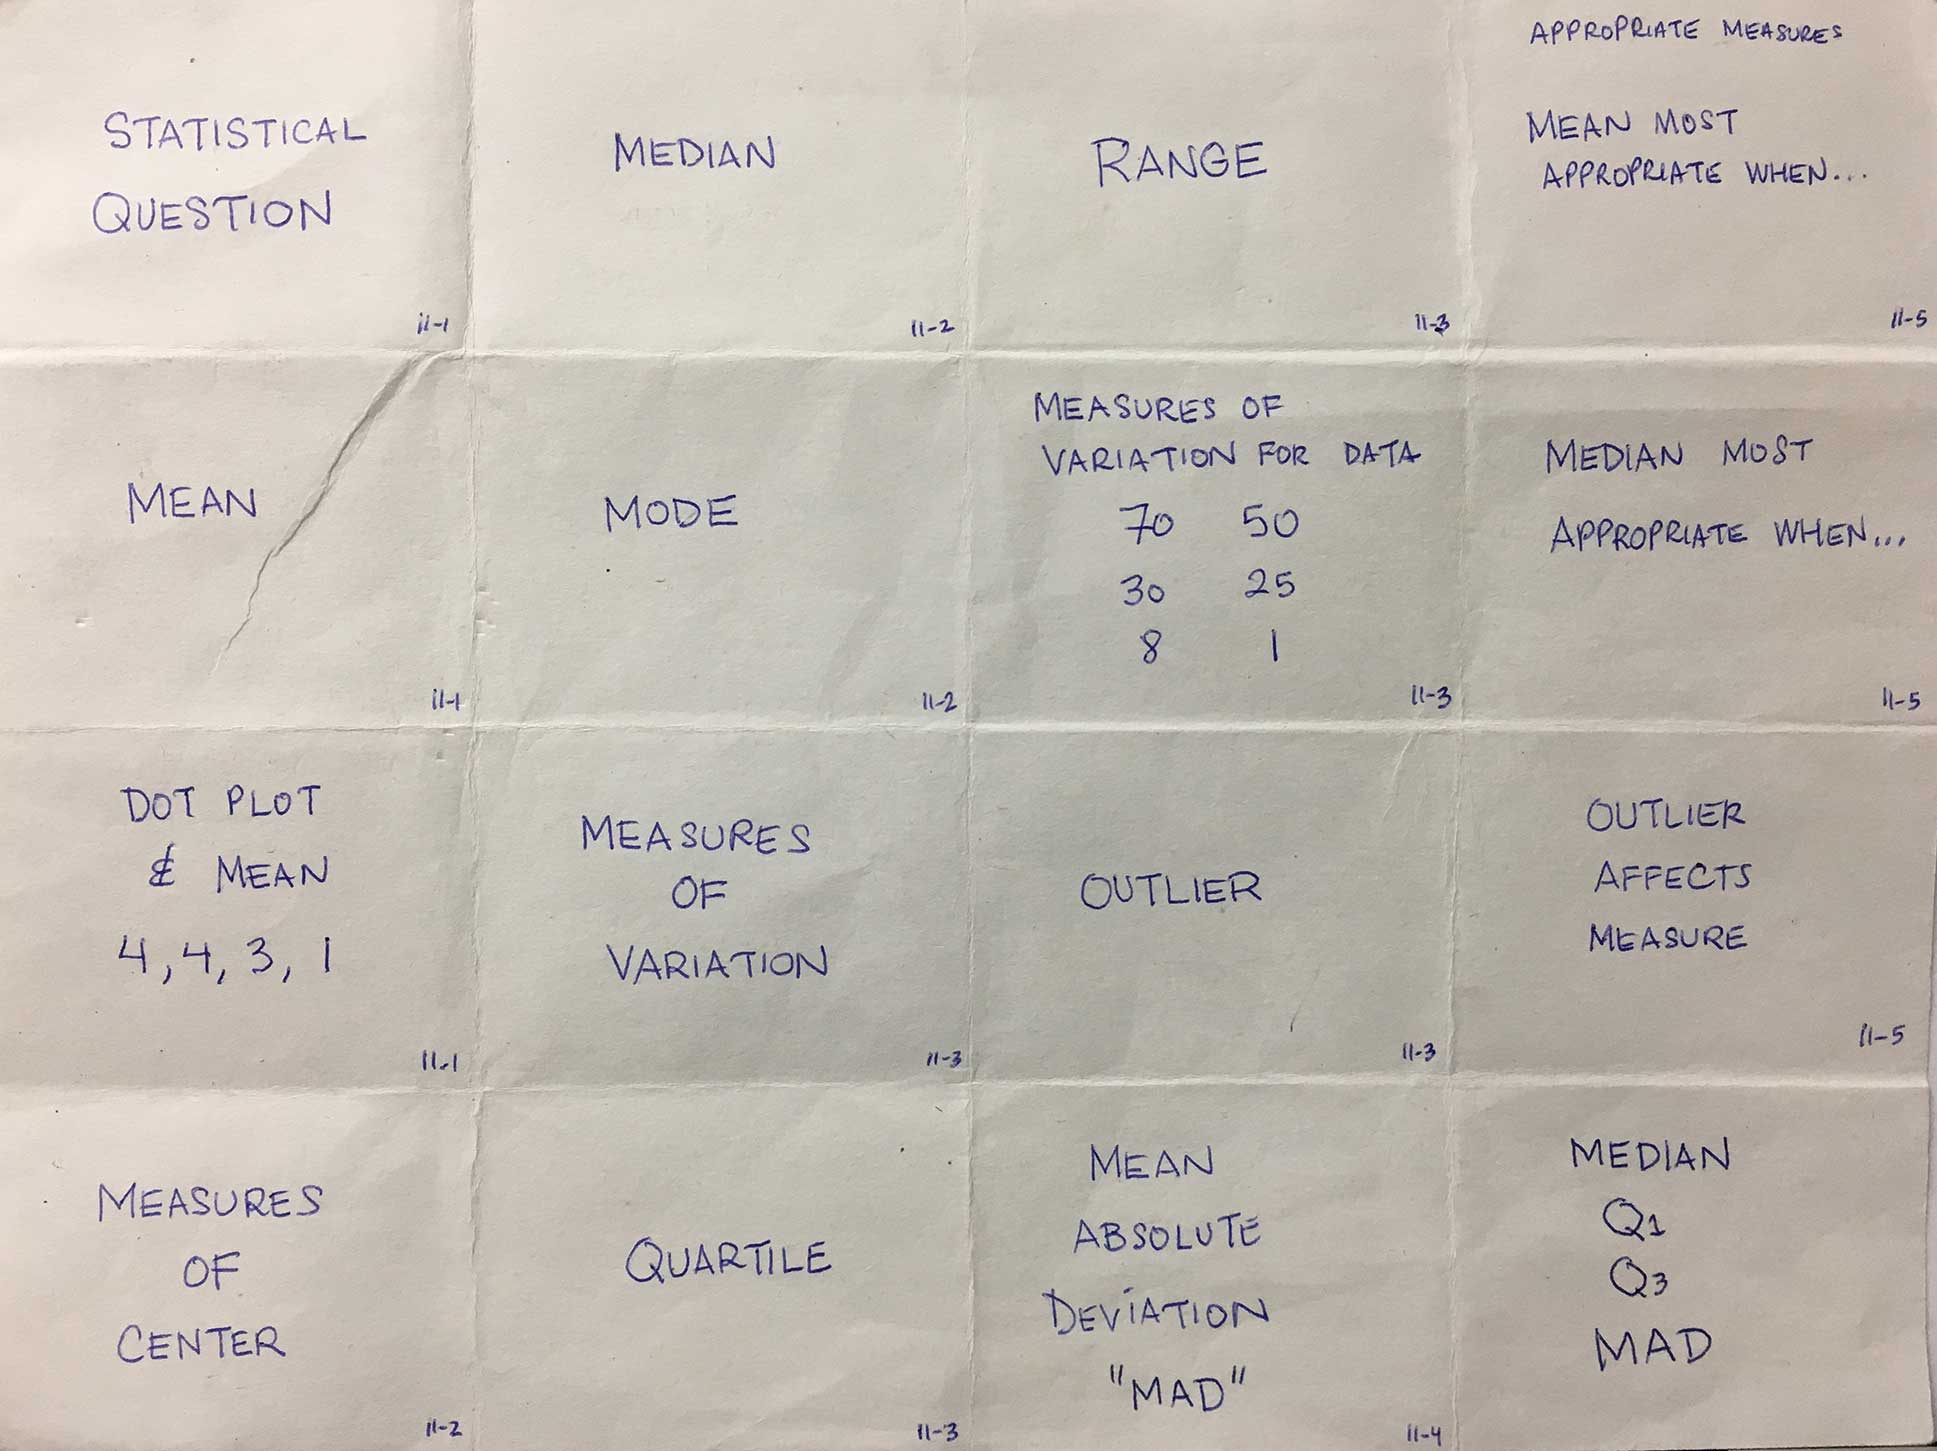 STATISTICAL
QUESTION
11-1
MEDIAN
11-2
RANGE
11-3
APPROPRIATE MEASURES
MEAN MOST
APPROPRIATE WHEN...
11-5
MEAN
11-1
MODE
11-2
MEASURES OF
VARIATION FOR DATA
70 50
30 25
8 1
11-3
MEDIAN MOST
APPROPRIATE WHEN...
11-5
DOT PLOT
& MEAN
4, 4, 3, 1
11-1
MEASURES
OF
VARIATION
11-3
OUTLIER
11-3
OUTLIER
AFFECTS
MEASURE
11-5
MEASURES
OF
CENTER
11-2
QUARTILE
11-3
MEAN
ABSOLUTE
DEVIATION
"MAD"
11-4
MEDIAN
Q1
Q3
MAD